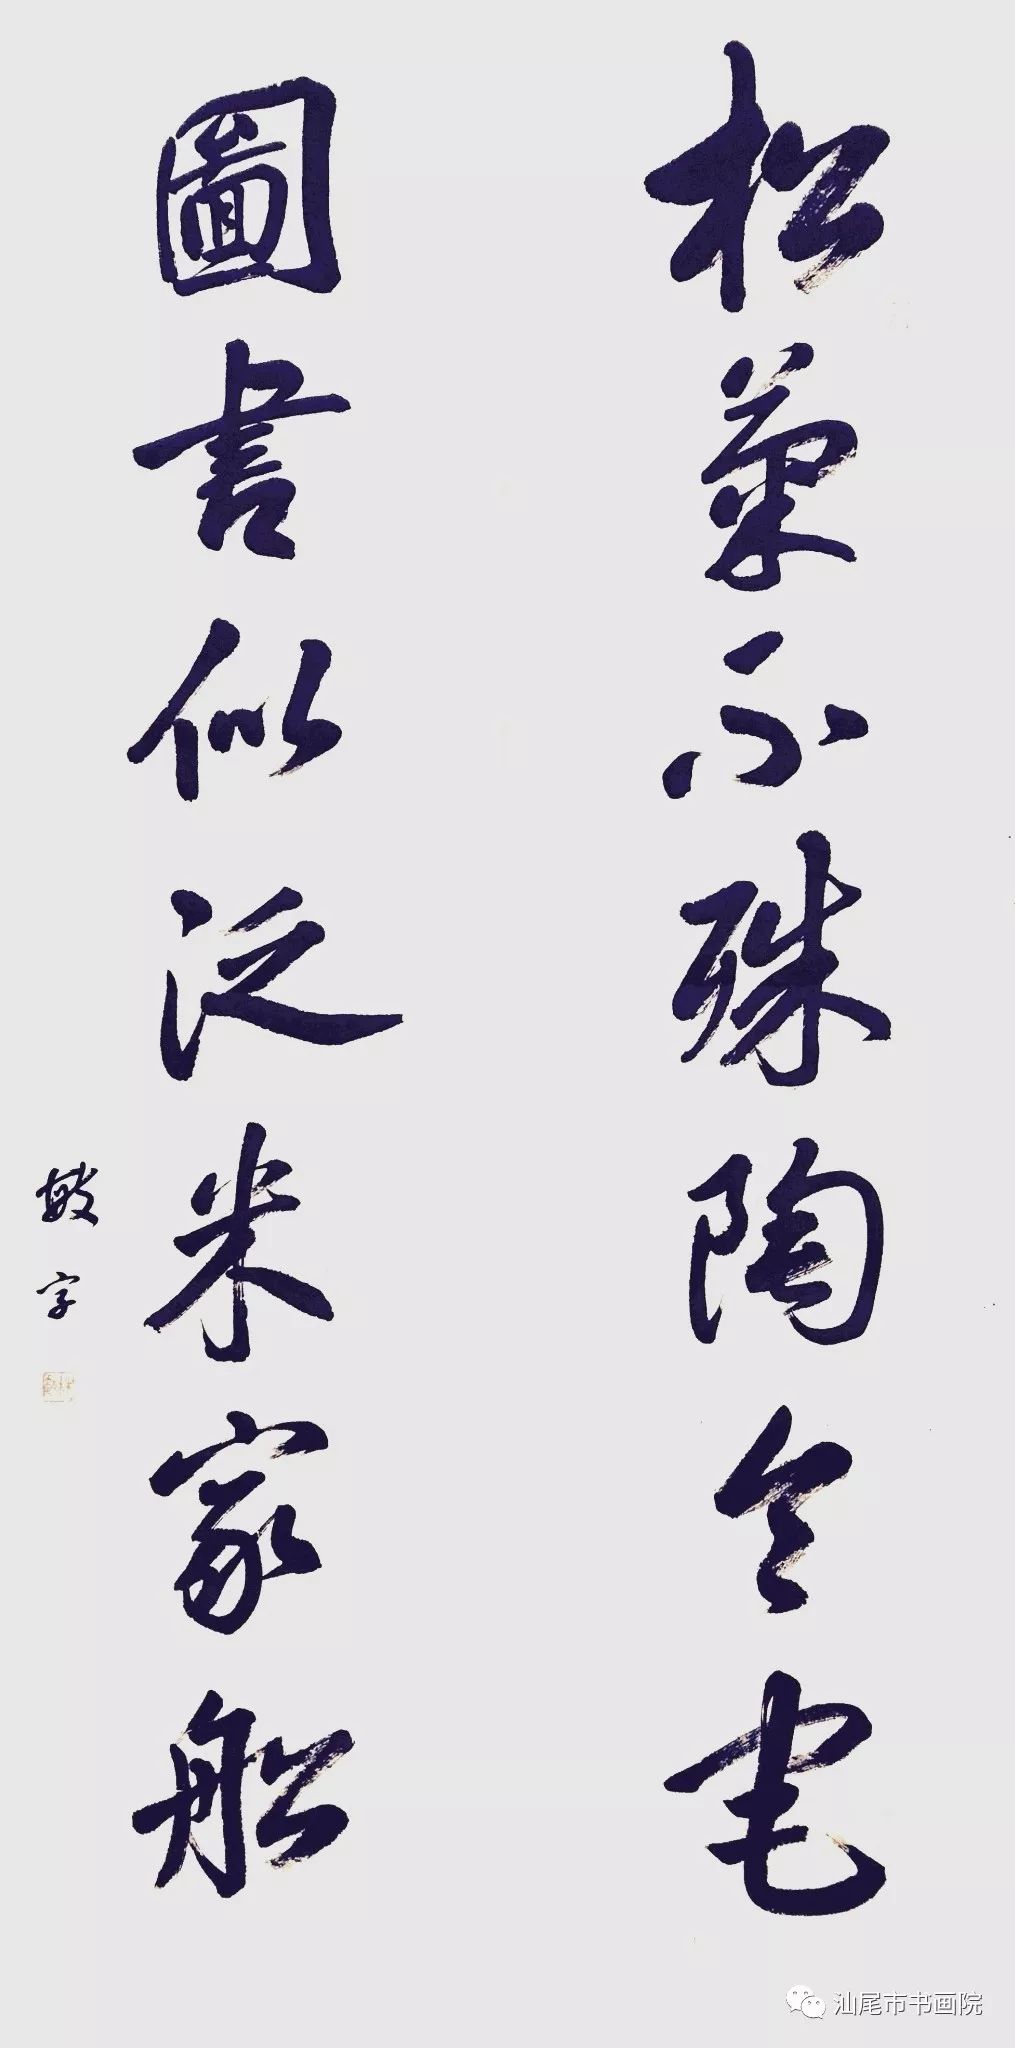 松菊不殊陶令宅
圖書似泛米家船
敏字
汕尾市书画院